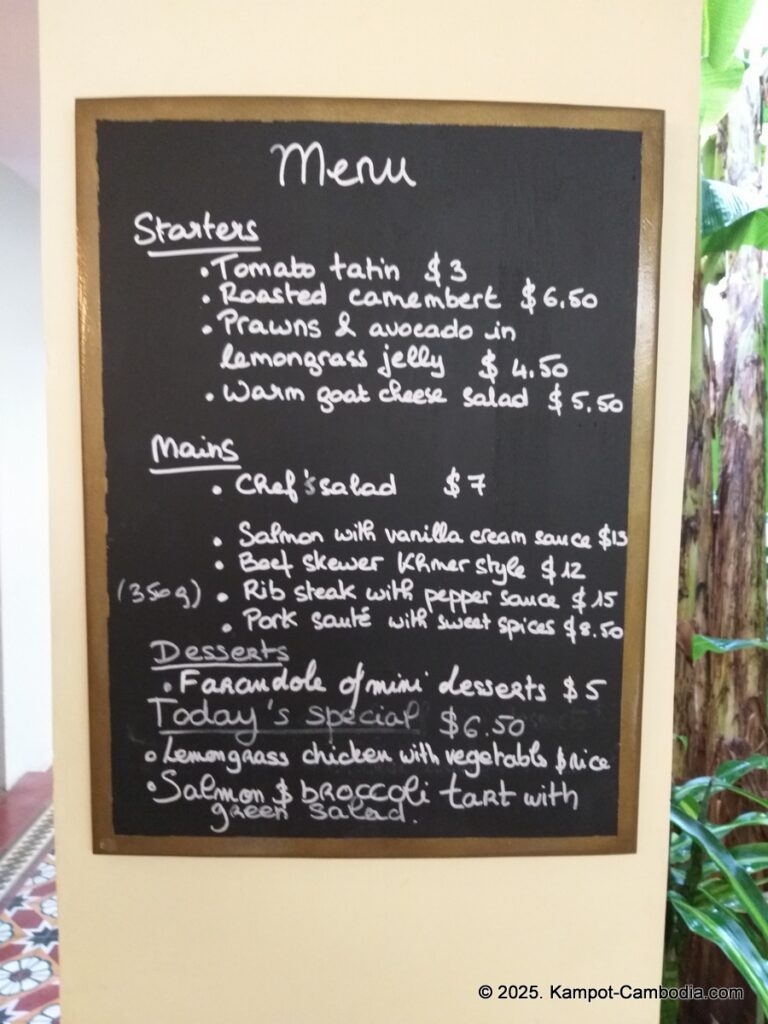 Menu
Starters
• Tomato tatin $3
• Roasted camembert $6.50
• Prawns & avocado in
lemongrass jelly $4.50
• Warm goat cheese salad $5.50
Mains
• Chef's salad $7
• Salmon with vanilla cream sauce $13
• Beef skewer Khmer style $12
(350g) • Rib steak with pepper sauce $15
• Pork sauté with sweet spices $8.50
Desserts
• Farandole of mini desserts $5
Today's special $6.50
• Lemongrass chicken with vegetable & rice
• Salmon & broccoli tart with
green salad.
© 2025. Kampot-Cambodia.com